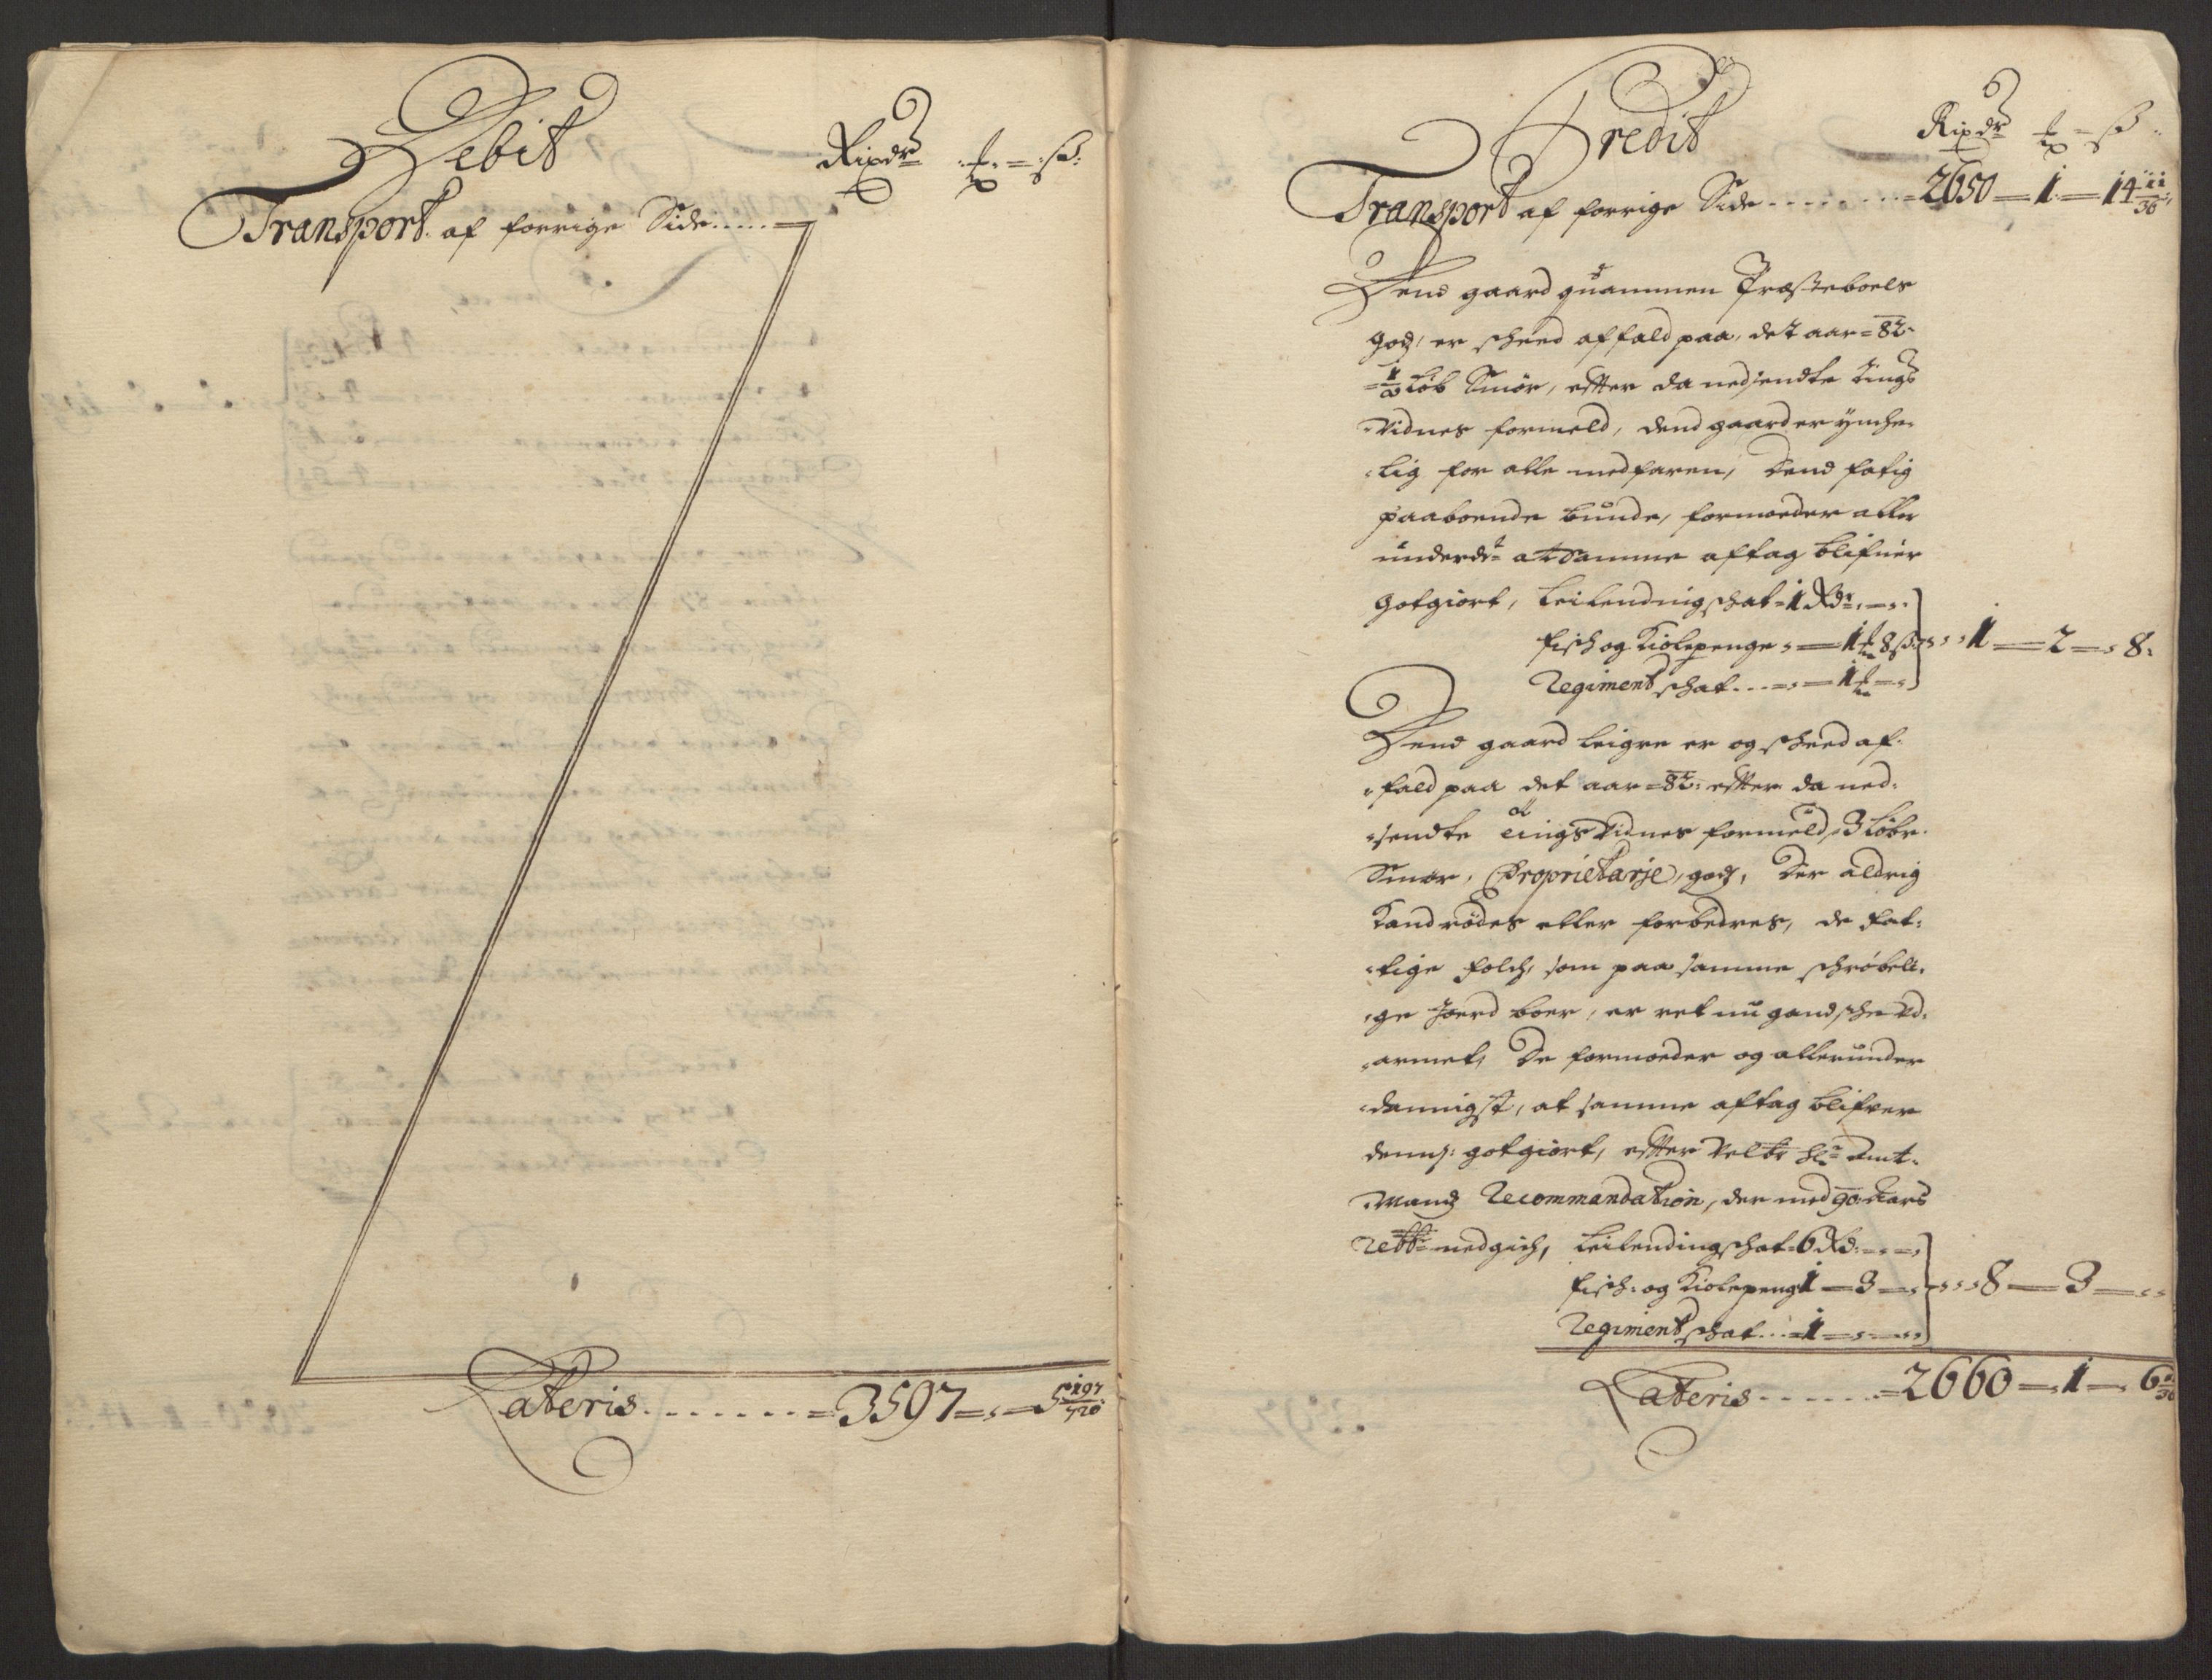 Debit
Rixdr ẜ ß
Transport af forrige Side
Lateris 3597 5 197/720
Credit
Rixdr ẜ ß
Transport af forrige Side 2650 1 14 11/36
Dend gaard quammen Præsteboels
godz, er scheed affald paa, det aar 82
1/2 Løb Smør, effter da nedsendte tings
vidnes formeld, dend gaard er ynche
lig for alle medfaren, Dend fatig
paaboende bunde, formoeder aller
underdt at Samme aftag blifuer
gotgiort, Leilendingschat 1 Rdr
fisch og Kiolepenge 1 8 ß 1 2 8
Regiment schat 1
Dend gaard Leigre er og scheed af
fald paa det aar 82 effter da ned
sendte tings vidnes formeld, 3 Løbe
Smør, Proprietarje godz, Der aldrig
Kand rødes eller forbedres, de fat
tige folch, som paa samme schrøbeli
ge Joerd boer, er ret nu gandsche ud
armet, De formoeder og allerunder
dannigst, at samme aftag blifver
dennem gotgiort, effter Velbr Hr Amt
Mandz Recommandation, der med 90 Aars
nedgich, Leilendingschat 6 Rd
fisch og Kiolepeng 1 3 8 3
Regiment schat 1
Lateris 2660 1 6